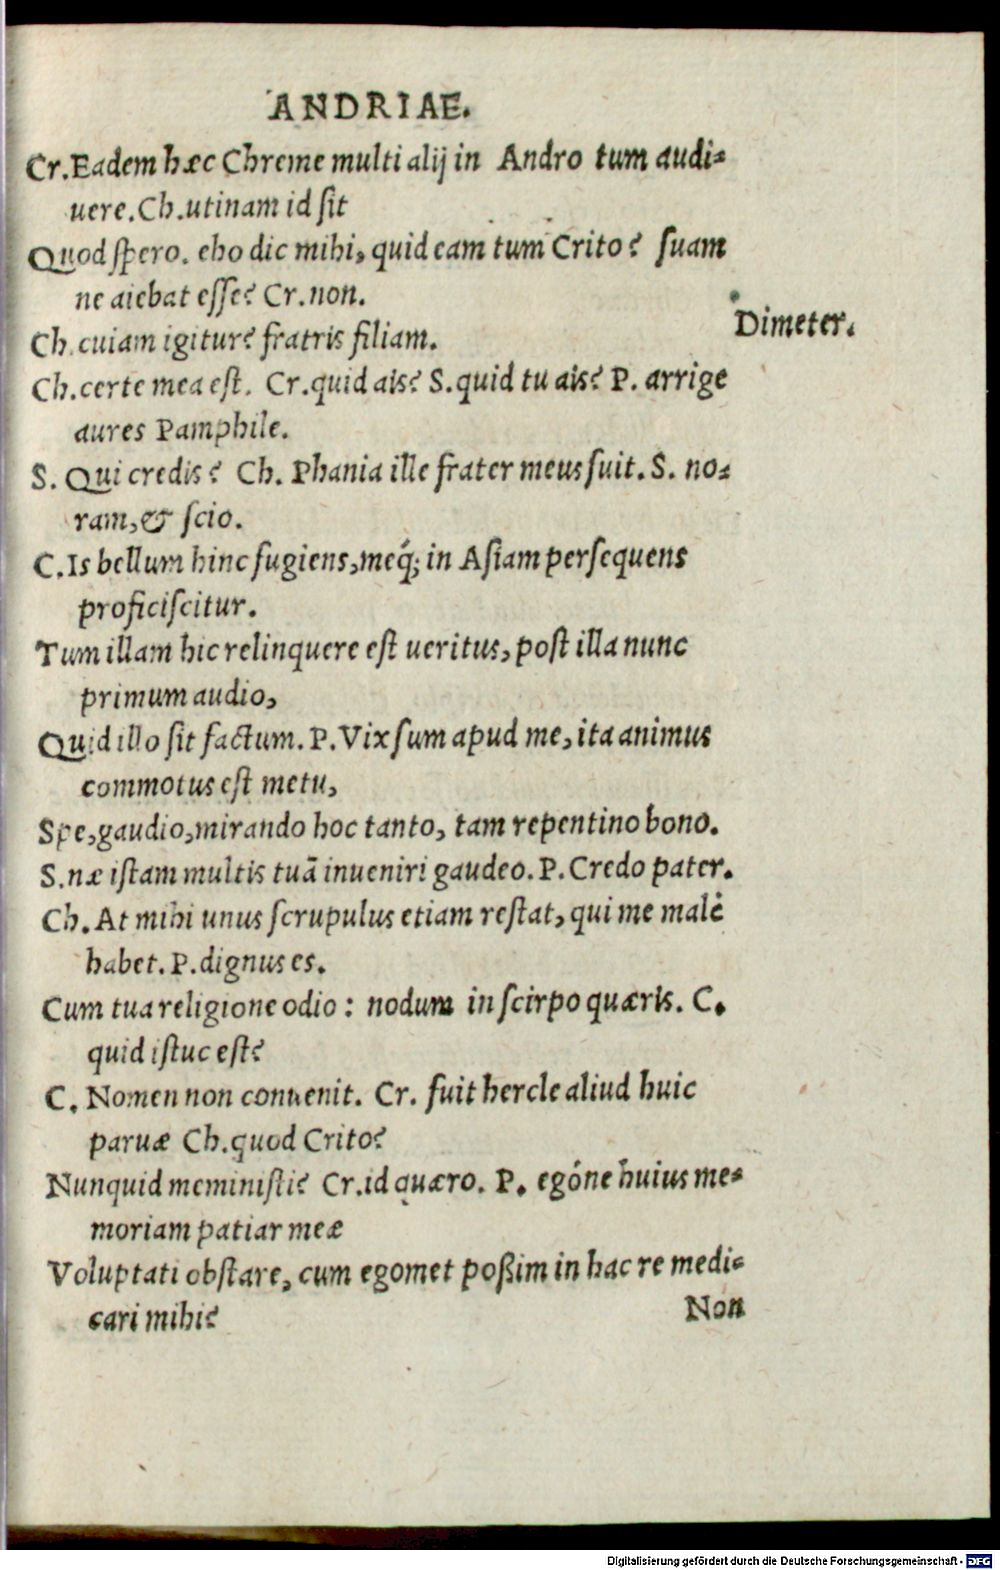 ANDRIAE.
Cr. Eadem hæc Chreme multi alij in Andro tum audi-
uere. Ch. utinam id sit
Quod spero. eho dic mihi, quid eam tum Crito? suam
ne aiebat esse? Cr. non.
Ch. cuiam igitur? fratris filiam.
Dimeter.
Ch. certe mea est. Cr. quid ais? S. quid tu ais? P. arrige
aures Pamphile.
S. Qui credis? Ch. Phania ille frater meus fuit. S. no-
ram, & scio.
C. Is bellum hinc fugiens, meq́; in Asiam persequens
proficiscitur.
Tum illam hic relinquere est ueritus, post illa nunc
primum audio,
Quid illo sit factum. P. Vix sum apud me, ita animus
commotus est metu,
Spe, gaudio, mirando hoc tanto, tam repentino bono.
S. næ istam multis tuā inueniri gaudeo. P. Credo pater.
Ch. At mihi unus scrupulus etiam restat, qui me malè
habet. P. dignus es.
Cum tua religione odio: nodum in scirpo quæris. C.
quid istuc est?
C. Nomen non conuenit. Cr. fuit hercle aliud huic
paruæ Ch. quod Crito?
Nunquid meministi? Cr. id quæro. P. egóne huius me-
moriam patiar meæ
Voluptati obstare, cum egomet poßim in hac re medi-
cari mihi?
Non
Digitalisierung gefördert durch die Deutsche Forschungsgemeinschaft - DFG